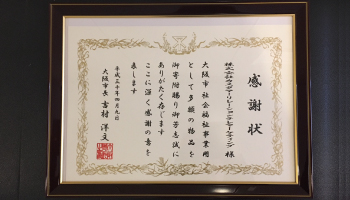 感謝状
株式会社カスタマーリレーションテレマーケティング 様
大阪市社会福祉事業用
として多額の物品を
御寄附賜り御芳志誠に
ありがたく存じます
ここに深く感謝の意を
表します
平成三十年四月九日
大阪市長 吉村洋文